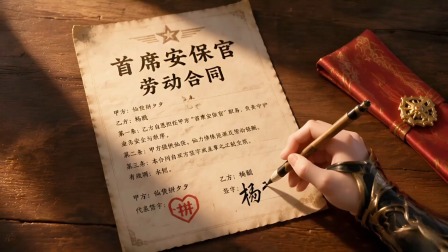 首席安保官
劳动合同
甲方：仙投拼夕夕
乙方：杨戬
第一条：乙方自愿担任甲方“首席安保官”职务，负责守护
业务安全与秩序。
第二条：甲方提供仙俸、仙力修炼资源及劳动报酬。
第三条：本合同自双方签字或盖章之日起生效。
有效期：永久
甲方：仙投拼夕夕
乙方：杨戬
代表签字：
拼
签字：
杨